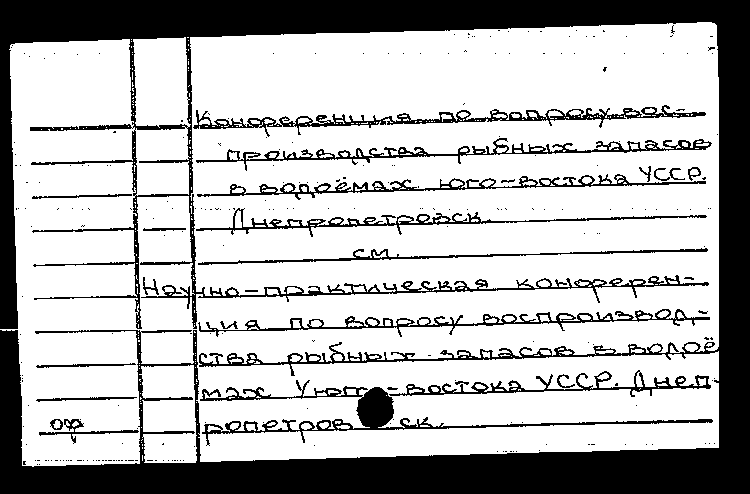 Конференция по вопросу вос-
производства рыбных запасов
в водоёмах юго-востока УССР.
Днепропетровск.
см.
Научно-практическая конферен-
ция по вопросу воспроизвод-
ства рыбных запасов в водоё
мах Юго-востока УССР. Днеп-
ропетров ск.
оф